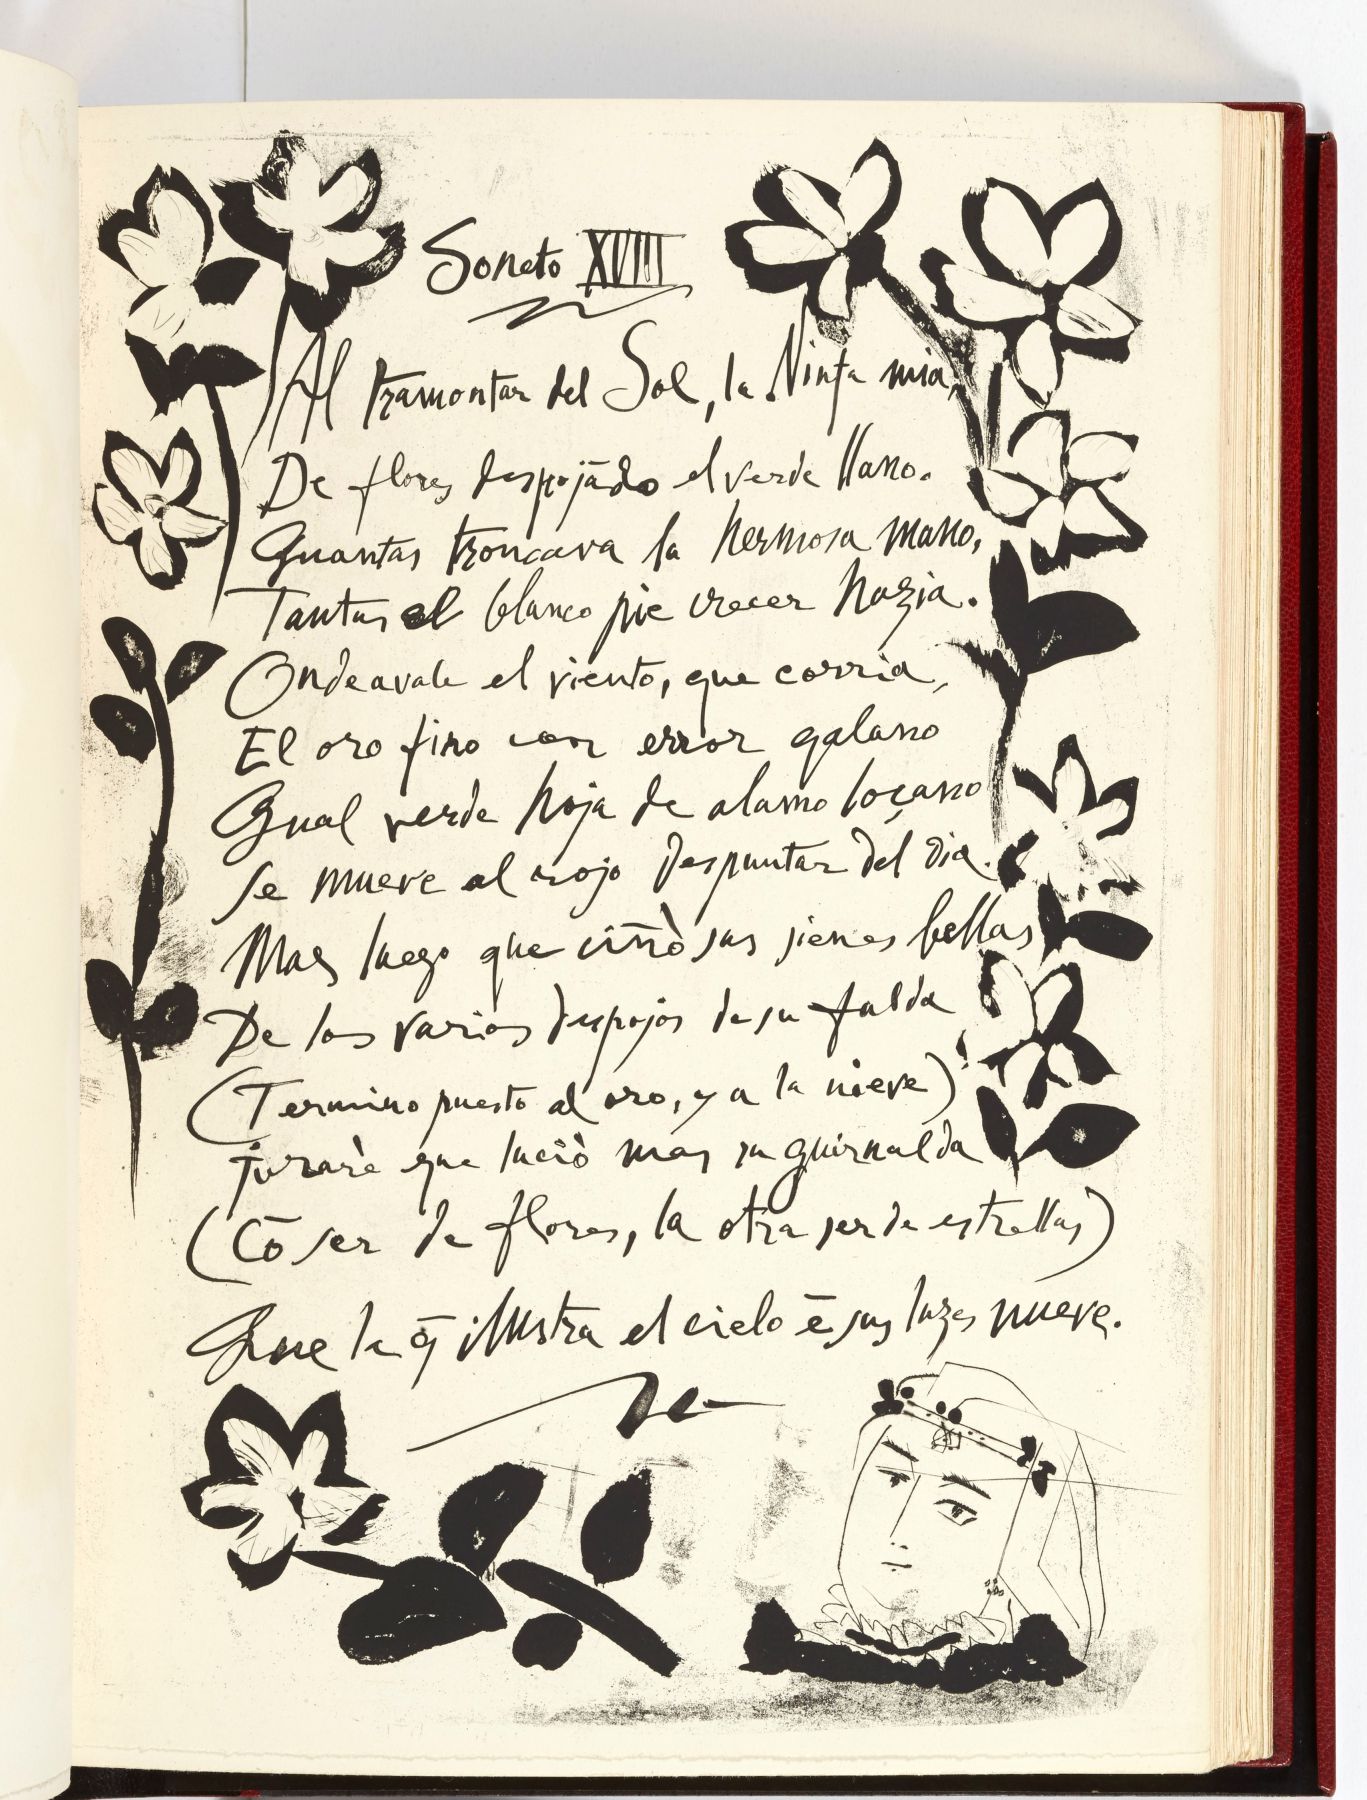 Soneto XVIII
Al tramontar del Sol, la Ninfa mia,
De flores despojãdo el verde llano.
Quantas troncava la hermosa mano,
Tantas el blanco pie crecer hazia.
Ondeavale el viento, que corria,
El oro fino con error galano
Qual verde hoja de alamo loçano
Se mueve al rojo despuntar del dia.
Mas luego que ciñò sus sienes bellas
De los varios despojos de su falda
(Termino puesto al oro, y a la nieve)
jurarè que luciò mas su guirnalda
(Cõ ser de flores, la otra ser de estrellas)
Que la q̃ ilustra el cielo ẽ sus luzes nueve.